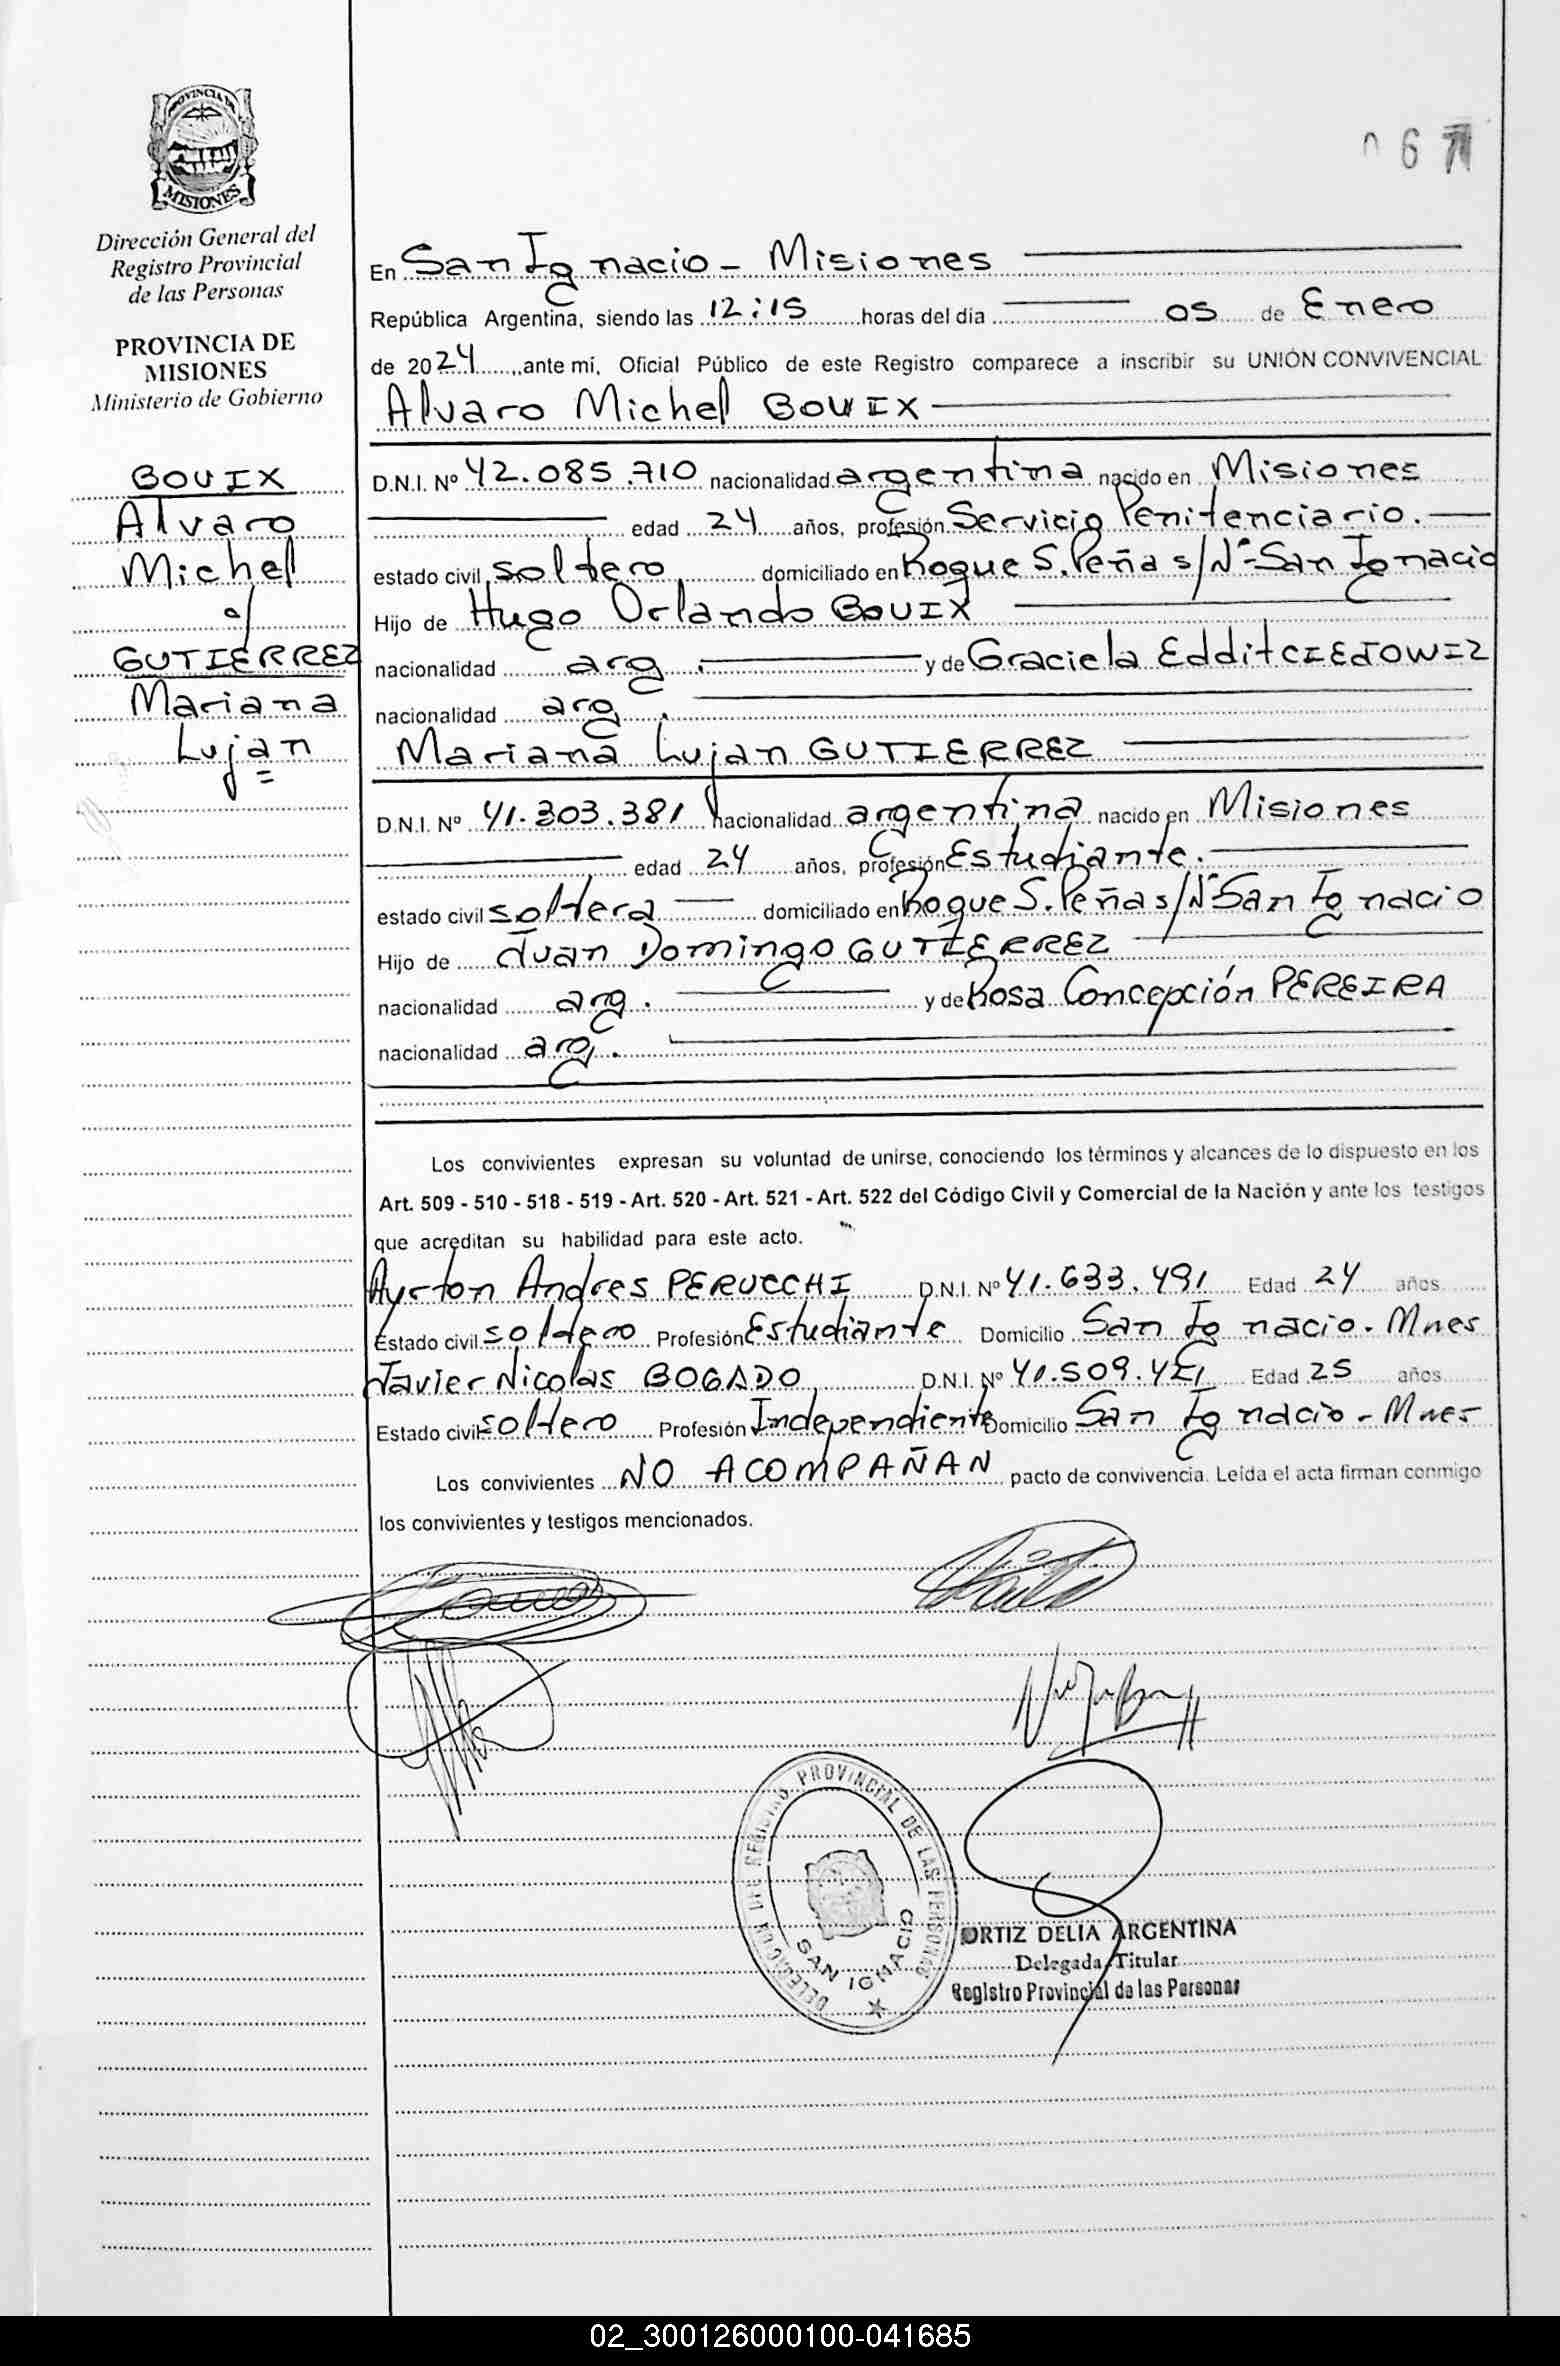 PROVINCIA DE
MISIONES
Dirección General del
Registro Provincial
de las Personas
PROVINCIA DE
MISIONES
Ministerio de Gobierno
BOUIX
Alvaro
Michel
c/
GUTIERREZ
Mariana
Lujan
En San Ignacio - Misiones
República Argentina, siendo las 12:15 horas del día 05 de Enero
de 2024, ante mí, Oficial Público de este Registro comparece a inscribir su UNIÓN CONVIVENCIAL
Alvaro Michel BOUIX
D.N.I. Nº 42.085.710 nacionalidad argentina nacido en Misiones
edad 24 años, profesión Servicio Penitenciario.
estado civil soltero domiciliado en Roque S. Peña s/Nº - San Ignacio
Hijo de Hugo Orlando BOUIX
nacionalidad arg. y de Graciela Eddit CIEJOWIZ
nacionalidad arg.
Mariana Lujan GUTIERREZ
D.N.I. Nº 41.303.381 nacionalidad argentina nacido en Misiones
edad 24 años, profesión Estudiante.
estado civil soltera domiciliado en Roque S. Peña s/Nº San Ignacio
Hijo de Juan Domingo GUTIERREZ
nacionalidad arg. y de Rosa Concepción PEREIRA
nacionalidad arg.
Los convivientes expresan su voluntad de unirse, conociendo los términos y alcances de lo dispuesto en los
Art. 509 - 510 - 518 - 519 - Art. 520 - Art. 521 - Art. 522 del Código Civil y Comercial de la Nación y ante los testigos
que acreditan su habilidad para este acto.
Ayrton Andres PERUCCHI D.N.I. Nº 41.633.491 Edad 24 años
Estado civil soltero Profesión Estudiante Domicilio San Ignacio. Mnes
Javier Nicolas BOGADO D.N.I. Nº 41.509.421 Edad 25 años
Estado civil soltero Profesión Independiente Domicilio San Ignacio - Mnes
Los convivientes NO ACOMPAÑAN pacto de convivencia. Leída el acta firman conmigo
los convivientes y testigos mencionados.
REGISTRO PROVINCIAL DE LAS PERSONAS
SAN IGNACIO
ORTIZ DELIA ARGENTINA
Delegada Titular
Registro Provincial de las Personas
02_300126000100-041685